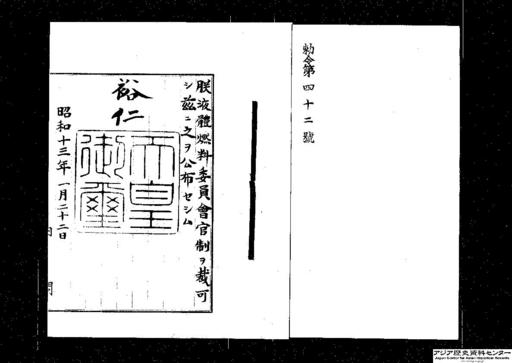 勅令第四十二號
朕液體燃料委員會官制ヲ裁可
シ茲ニ之ヲ公布セシム
裕仁
天皇
御璽
昭和十三年一月二十二日
アジア歴史資料センター
Japan Center for Asian Historical Records